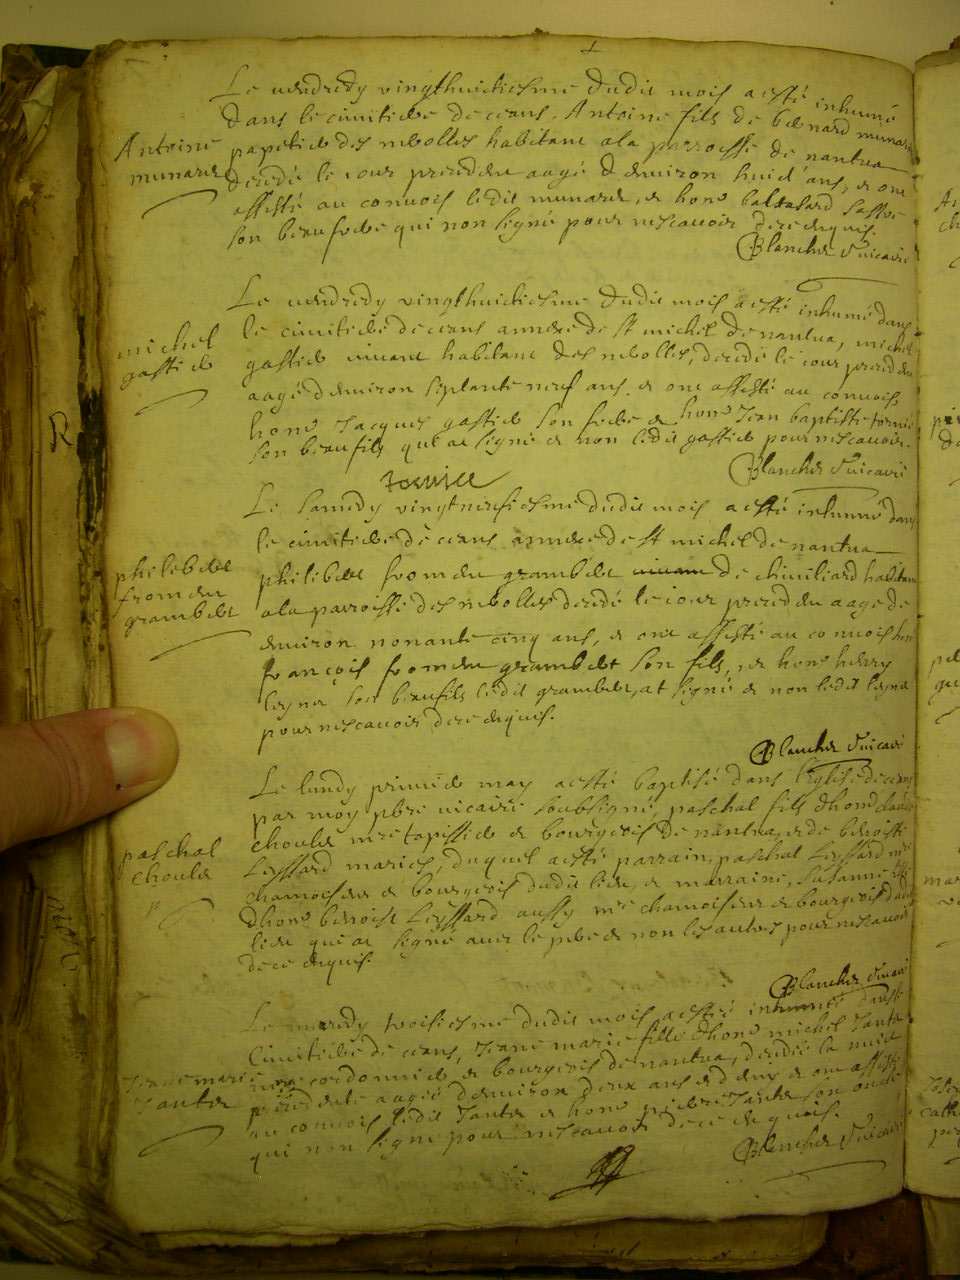 Le vendredy vingthuictiesme dudit mois a esté inhumé
dans le cimitiere de ceans, Antoine fils de bernard munard
Antoine
munard
papetier des neolles habitant a la parroisse de nantua
decedé le jour precedent aagé d'environ huict ans, et ont
assisté au convois ledit munard, et hono baltasard
son beaufrere qui n'on signé pour ne scavoir de ce enquis.
Blanchet Vicaire
Le vendredy vingthuictiesme dudit mois a esté inhumé dans
le cimitiere de ceans annexe de st michel de nantua, michel
michel
gastier
gastier vivant habitant des neolles, decedé le jour precedent
aagé d'environ septante neuf ans, et ont assisté au convois
hono Jacques gastier son frere et hono Jean baptiste tornier
son beaufils qui at signé et non ledit gastier pour ne scavoir.
Blanchet Vicaire
Le samedy vingtneufiesme dudit mois a esté inhumé dans
le cimitiere de ceans annexe de st michel de nantua
philibert
fromen
grambert
philibert fromen grambert vivant de chiviliard habitant
a la parroisse des neolles decedé le jour precedent aagé de
environ nonante cinq ans, et ont assisté au convois hono
françois fromen grambert son fils, et hono henry
son beaufils ledit grambert, at signé et non ledit
pour ne scavoir de ce enquis.
Blanchet Vicaire
Le lundy premier may a esté baptisé dans l'eglise de ceans
par moy pbre vicaire soubsigné, paschal fils d'hono claude
paschal
choulet
choulet mre tapissier et bourgeois de nantua, et de benoiste
Leyssard mariés, duquel a esté parrain, paschal Leyssard mre
chamoiseur et bourgeois dudit lieu, et marraine, Susanne fille
d'hono benoist Leyssard aussy mre chamoiseur et bourgeois dudit
lieu qui at signé avec le pere et non les autres pour ne scavoir
de ce enquis.
Blanchet Vicaire
Le mercredy troisiesme dudit mois a esté inhumé dans le
Cimitiere de ceans, Jeane marie fille d'hono michel Tante
Jeane marie
Tante
mre cordonnier et bourgeois de nantua, decedée la nuict
precedente aagée d'environ deux ans et demy et ont assisté
au convois ledit Tante et hono pierre Tante son oncle
qui n'on signé pour ne scavoir de ce enquis.
Blanchet Vicaire